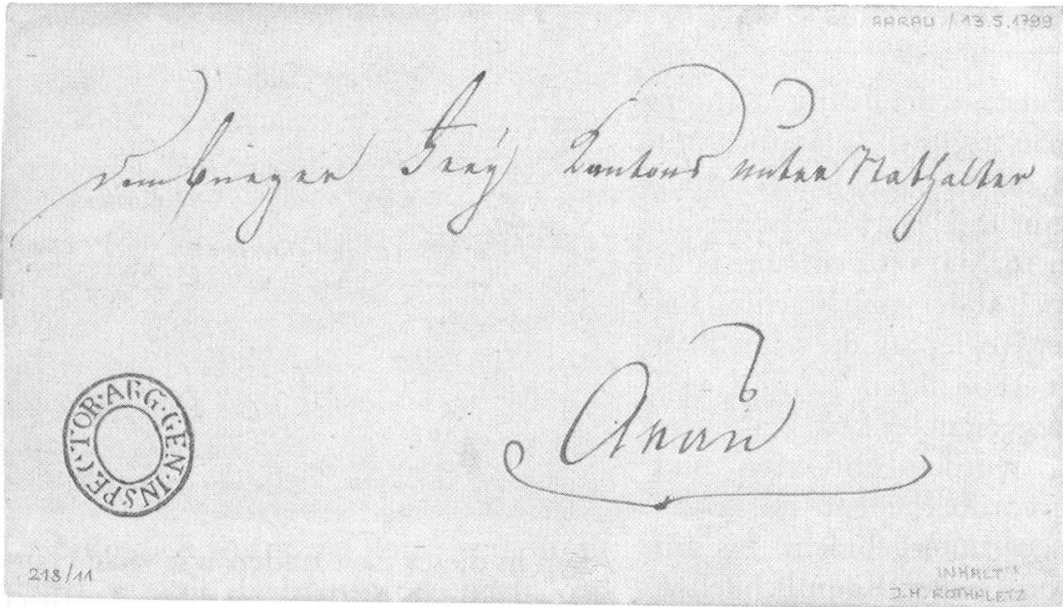 AARAU / 13.5.1799
dem bürger Freÿ Kantons unter Stathalter
Arau
ARG·GEN·INSPECTOR·
218/11
INHALT:
J.H. ROTHPLETZ